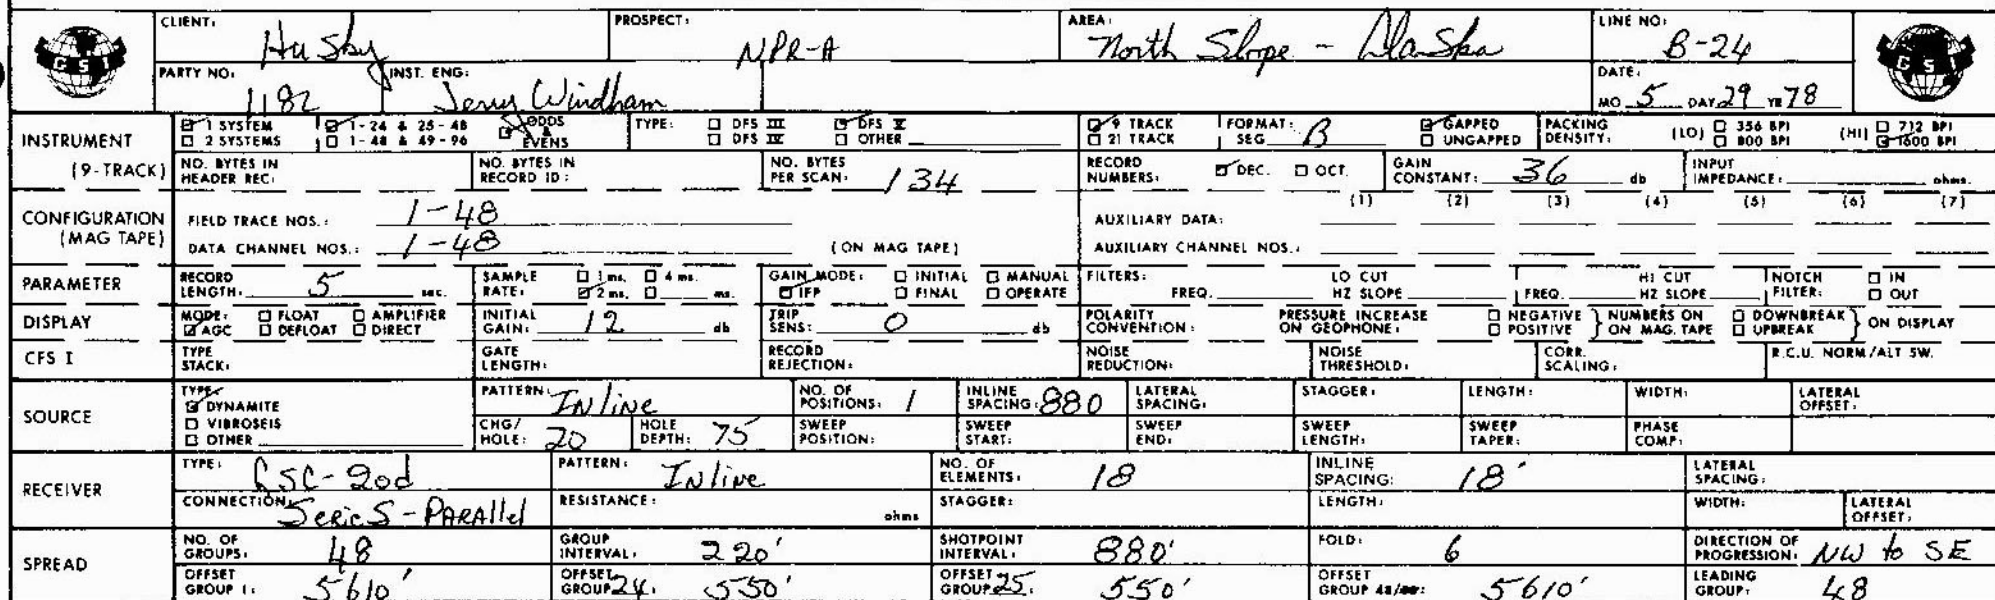 CLIENT: Husky PROSPECT: NPR-A AREA: North Slope - Alaska LINE NO: B-24
GSI GSI
PARTY NO: 1182 INST. ENG: Jerry Windham DATE: MO 5 DAY 29 YR 78
INSTRUMENT (9-TRACK) 1 SYSTEM 1-24 & 25-48 ODDS & EVENS TYPE: DFS III DFS V 9 TRACK FORMAT: SEG B GAPPED PACKING DENSITY: (LO) 356 BPI (HI) 712 BPI
2 SYSTEMS 1-48 & 49-96 DFS IV OTHER 21 TRACK UNGAPPED 800 BPI 1600 BPI
NO. BYTES IN HEADER REC: NO. BYTES IN RECORD ID: NO. BYTES PER SCAN: 134 RECORD NUMBERS: DEC. OCT. GAIN CONSTANT: 36 db INPUT IMPEDANCE: ohms.
CONFIGURATION (MAG TAPE) FIELD TRACE NOS.: 1-48 AUXILIARY DATA: (1) (2) (3) (4) (5) (6) (7)
DATA CHANNEL NOS.: 1-48 (ON MAG TAPE) AUXILIARY CHANNEL NOS.:
PARAMETER RECORD LENGTH: 5 sec. SAMPLE RATE: 1 ms. 4 ms. 2 ms. ms. GAIN MODE: INITIAL MANUAL IFP FINAL OPERATE FILTERS: FREQ. LO CUT HZ SLOPE FREQ. HI CUT HZ SLOPE NOTCH FILTER: IN OUT
DISPLAY MODE: FLOAT AMPLIFIER AGC DEFLOAT DIRECT INITIAL GAIN: 12 db TRIP SENS: 0 db POLARITY CONVENTION: PRESSURE INCREASE ON GEOPHONE: NEGATIVE POSITIVE NUMBERS ON MAG. TAPE DOWNBREAK UPBREAK ON DISPLAY
CFS I TYPE STACK: GATE LENGTH: RECORD REJECTION: NOISE REDUCTION: NOISE THRESHOLD: CORR. SCALING: R.C.U. NORM/ALT SW.
SOURCE TYPE: DYNAMITE VIBROSEIS OTHER PATTERN: INline NO. OF POSITIONS: 1 INLINE SPACING: 880 LATERAL SPACING: STAGGER: LENGTH: WIDTH: LATERAL OFFSET:
CHG/HOLE: 20 HOLE DEPTH: 75 SWEEP POSITION: SWEEP START: SWEEP END: SWEEP LENGTH: SWEEP TAPER: PHASE COMP:
RECEIVER TYPE: GSC-20d PATTERN: INline NO. OF ELEMENTS: 18 INLINE SPACING: 18' LATERAL SPACING:
CONNECTION: SerieS-PARAllel RESISTANCE: ohms STAGGER: LENGTH: WIDTH: LATERAL OFFSET:
SPREAD NO. OF GROUPS: 48 GROUP INTERVAL: 220' SHOTPOINT INTERVAL: 880' FOLD: 6 DIRECTION OF PROGRESSION: NW to SE
OFFSET GROUP 1: 5610' OFFSET GROUP 24: 550' OFFSET GROUP 25: 550' OFFSET GROUP 48/96: 5610' LEADING GROUP: 48